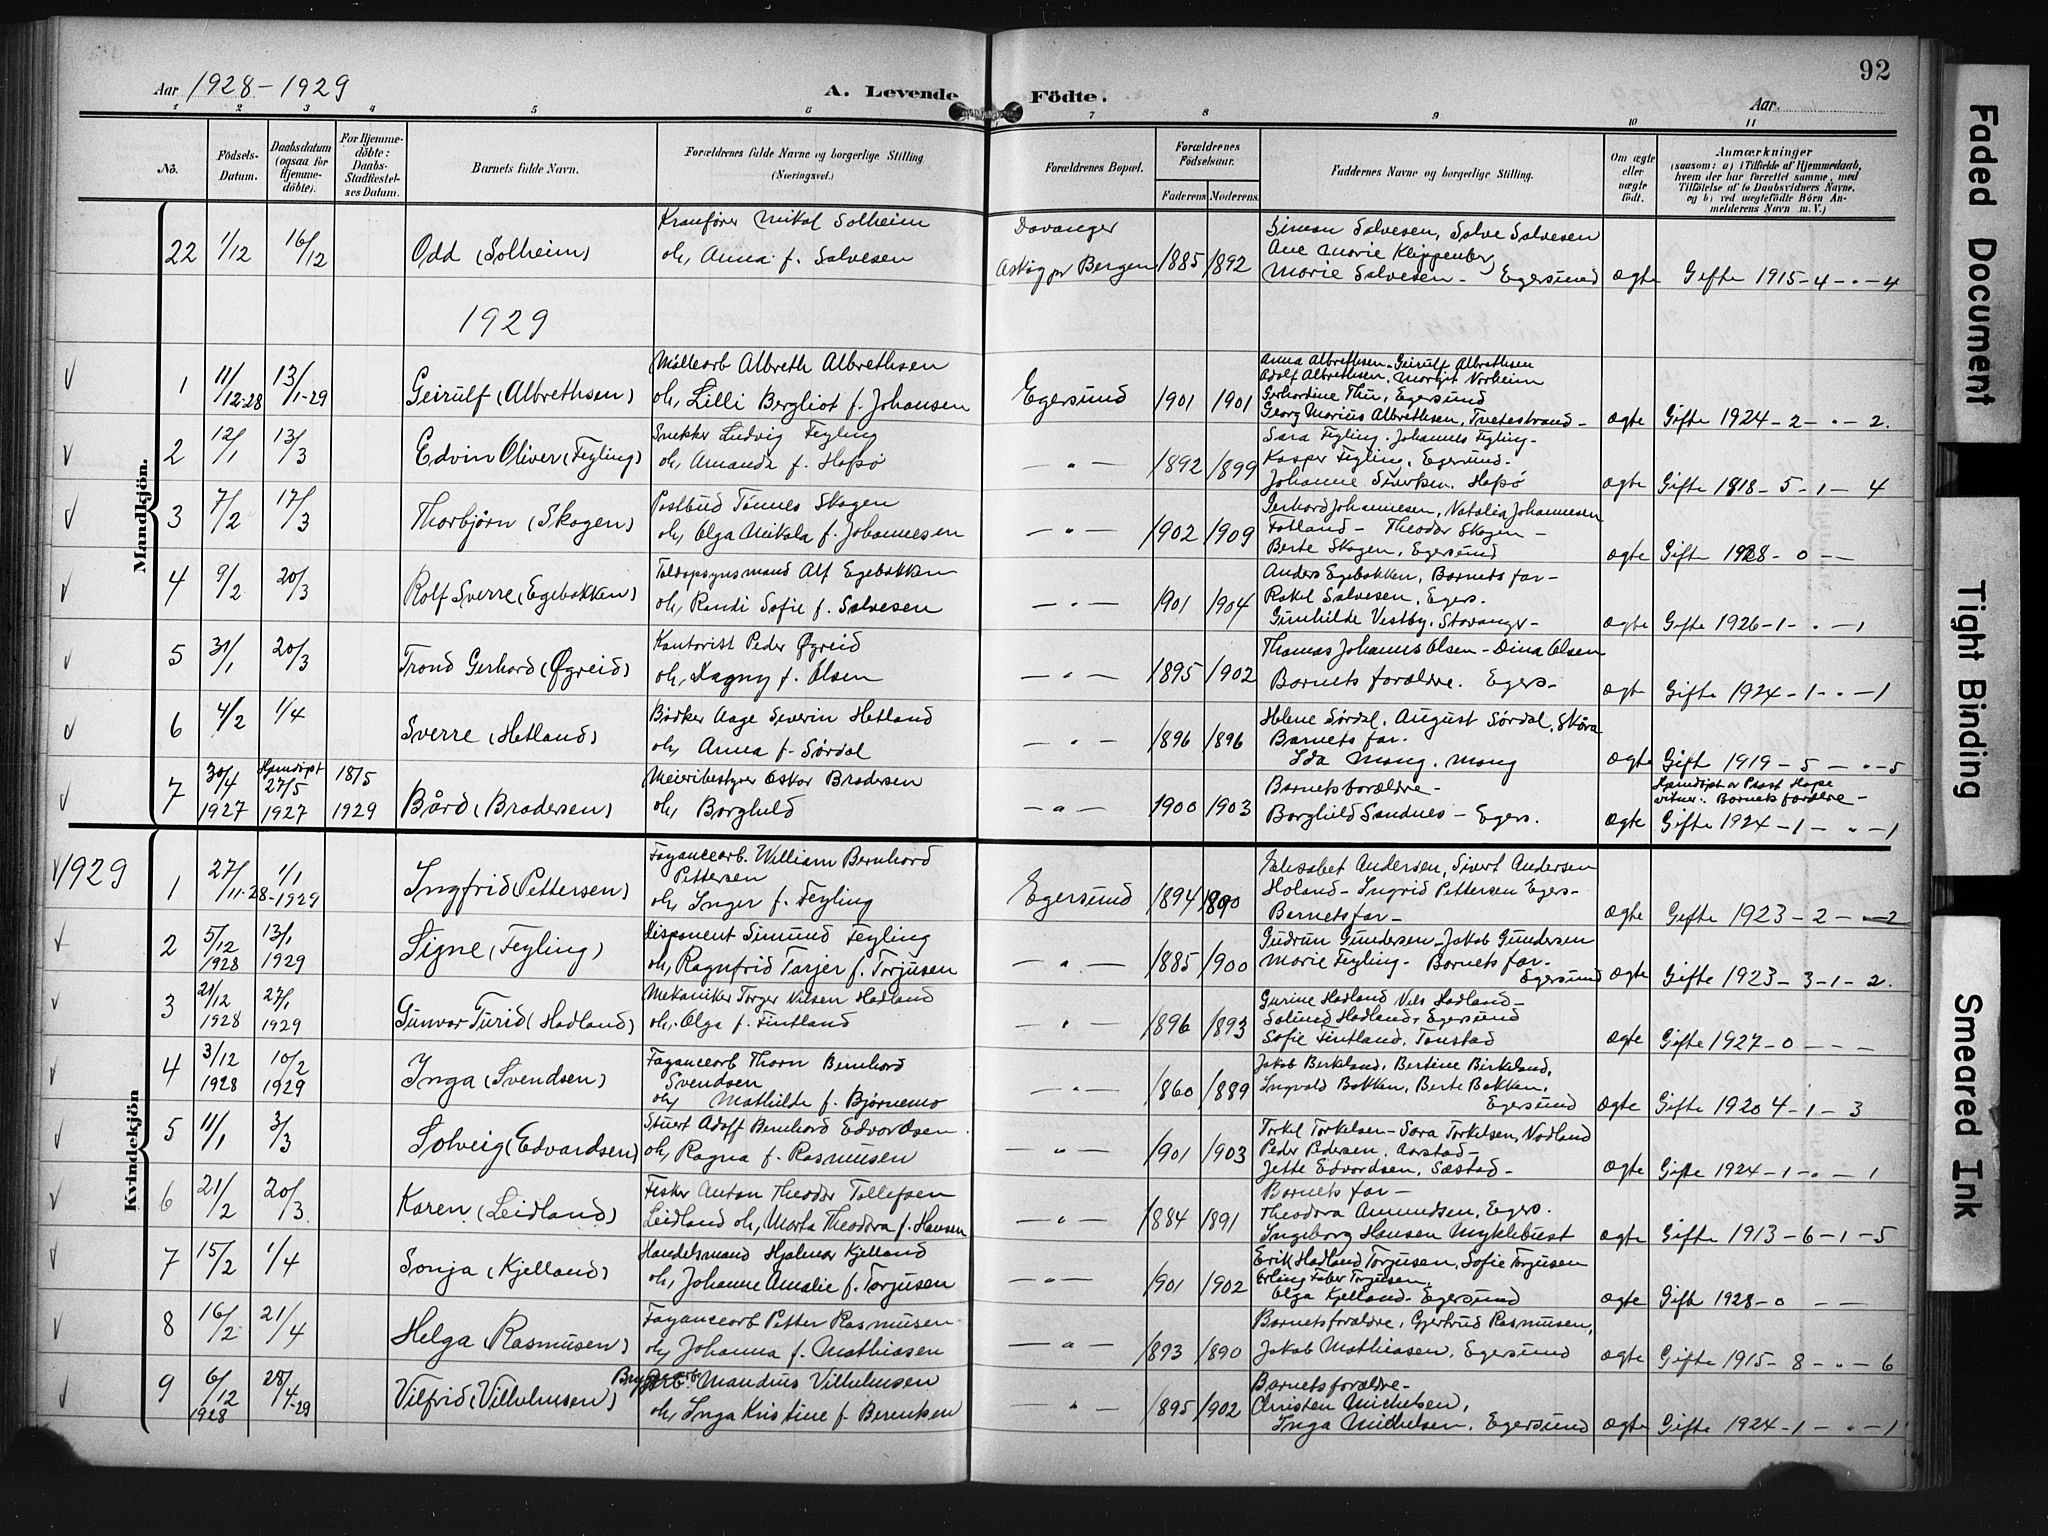 92
Aar 1928-1929
A. Levende Födte.
Aar.
1 2 3 4 5 6 7 8 9 10 11
No.
Födsels-Datum.
Daabsdatum (ogsaa for Hjemme-döbte).
For Hjemme-döbte: Daabs-Stadfæstelses Datum.
Barnets fulde Navn.
Forældrenes fulde Navne og borgerlige Stilling (Næringsvei.)
Forældrenes Bopæl.
Forældrenes Födselsaar.
Faderens Moderens
Faddernes Navne og borgerlige Stilling.
Om ægte eller uægte födt.
Anmærkninger
(saasom: a) i Tilfælde af Hjemmedaab, hvem der har forrettet samme, med Tilföielse af to Daabsvidners Navne. og b) ved uægtefödte Börn Anmelderens Navn m. V.)
Mandkjön.
22 1/12 16/12 Odd (Solheim)
Kranfører Mikal Solheim
oh, Anna f. Salvesen
Davanger
Askøy pr Bergen 1885 1892
Simon Salvesen, Salve Salvesen
Ane Marie Klippenberg
Marie Salvesen - Egersund
ægte Gifte 1915-4-"-4
1929
1 11/12-28 13/1-29 Geirulf (Albrethsen)
Albreth Albrethsen
oh, Lilli Bergliot f. Johansen
Egersund 1901 1901
Anna Albrethsen - Geirulf Albrethsen
Adolf Albrethsen, Margit Norheim
Gerhardine Thu, Egersund
Georg Marius Albrethsen, Tvetestrand -
ægte Gifte 1924-2-"-2.
2 12/1 13/3 Edvin Oliver (Feyling)
Snekker Ludvig Feyling
oh, Amanda f. Hafsø
-"- 1892 1899
Sara Feyling. Johannes Feyling -
Kasper Feyling, Egersund.
Johanne Sivertsen. Hafsø
ægte Gifte 1918-5-1-4
3 7/2 17/3 Thorbjørn (Skogen)
Postbud Tønnes Skogen
oh, Olga Mikala f. Johannesen
-"- 1902 1909
Gerhard Johannesen, Natalia Johannesen
Fotland - Theodor Skogen -
Berte Skogen, Egersund
ægte Gifte 1928-0--
4 9/2 20/3 Rolf Sverre (Egebakken)
Toldopsynsmand Alf Egebakken
oh, Randi Sofie f. Salvesen
-"- 1901 1904
Anders Egebakken, Barnets far -
Rakel Salvesen, Egers.
Gunhilde Vestby, Stavanger -
ægte Gifte 1926-1-"-1
5 31/1 20/3 Trond Gerhard (Øgreid)
Kontorist Peder Øgreid
oh, Dagny f. Olsen
-"- 1895 1902
Thomas Johannes Olsen - Dina Olsen
Barnets forældre. Egers -
ægte Gifte 1924-1-"-1
6 4/2 1/4 Sverre (Hetland)
Bødker Aage Severin Hetland
oh, Anna f. Sørdal
-"- 1896 1896
Helene Sørdal, August Sørdal, Skåra
Barnets far.
Ida Mong. Mong
ægte Gifte 1919-5-"-5
7 30/4 1927 Hjemdøpt 27/5 1927 18/5 1929 Bård (Brodersen)
Meieribestyrer Oskar Brodersen
oh, Borghild
-"- 1900 1903
Barnets forældre -
Borghild Sandnes - Egers.
ægte Hjemdøpt av Prost Hope
vitner: Barnets forældre -
Gifte 1924-1-"-1
Kvindekjön
1929
1 27/11-28 1/1-1929 Ingfrid (Pettersen)
Fayancearb. William Bernhard
Pettersen
oh, Inger f. Feyling
Egersund 1894 1890
Elisabet Andersen, Sivert Andersen
Holand - Ingrid Pettersen Egers -
Barnets far -
ægte Gifte 1923-2-"-2
2 5/12 1928 13/1 1929 Signe (Feyling)
Disponent Simund Feyling
oh, Ragnfrid Tarjer f. Torjusen
-"- 1885 1900
Gudrun Gundersen - Jakob Gundersen
Marie Feyling - Barnets far -
Egersund ægte Gifte 1923-3-1-2.
3 21/12 1928 27/1 1929 Gunvor Turid (Hadland)
Mekaniker Torger Nilsen Hadland
oh, Olga f. Fintland
-"- 1896 1893
Gurine Hadland Nils Hadland -
Salmund Hadland, Egersund
Sofie Fintland, Tonstad
ægte Gifte 1927-0---
4 3/12 1928 10/2 1929 Inga (Svendsen)
Fayancearb Thorn Bernhard
Svendsen
oh, Mathilde f. Bjørnemo
-"- 1860 1889
Jakob Birkeland, Bertine Birkeland,
Ingvald Bakken, Berte Bakken.
Egersund ægte Gifte 1920 4-1-3
5 11/1 3/3 Solveig (Edvardsen)
Stuert Adolf Bernhard Edvardsen
oh, Ragna f. Rasmusen
-"- 1901 1903
Torkel Torkelsen - Sara Torkelsen, Nodland
Peder Pedersen, Aarstad -
Jette Edvardsen, Sæstad -
ægte Gifte 1924-1-"-1
6 21/2 20/3 Karen (Leidland)
Fisker Anton Theodor Tollefsen
Leidland oh, Marta Theodora f. Hansen
-"- 1884 1891
Barnets far -
Theodora Amundsen, Egers.
Ingeborg Hansen Myklebust
ægte Gifte 1913-6-1-5
7 15/2 1/4 Sonja (Kjelland)
Handelsmand Hjalmar Kjelland
oh, Johanne Amalie f. Torjusen
-"- 1901 1902
Erik Hadland Torjusen, Sofie Torjusen
Erling Faber Torjusen,
Olga Kjelland. Egersund
ægte Gifte 1928-0--
8 16/2 21/4 Helga (Rasmusen)
Fayancearb Petter Rasmusen
oh, Johanna f. Mathiasen
-"- 1893 1890
Barnets forældre, Gjertrud Rasmusen,
Jakob Mathiasen, Egersund
ægte Gifte 1915-8-"-6
9 6/12 1928 28/4-29 Vilfrid (Vilhelmsen)
Mandius Vilhelmsen
oh, Inga Kristine f. Berentsen
-"- 1895 1902
Barnets forældre -
Christen Michelsen,
Inga Michelsen, Egersund
ægte Gifte 1924-1-"-1
Faded Document
Tight Binding
Smeared Ink